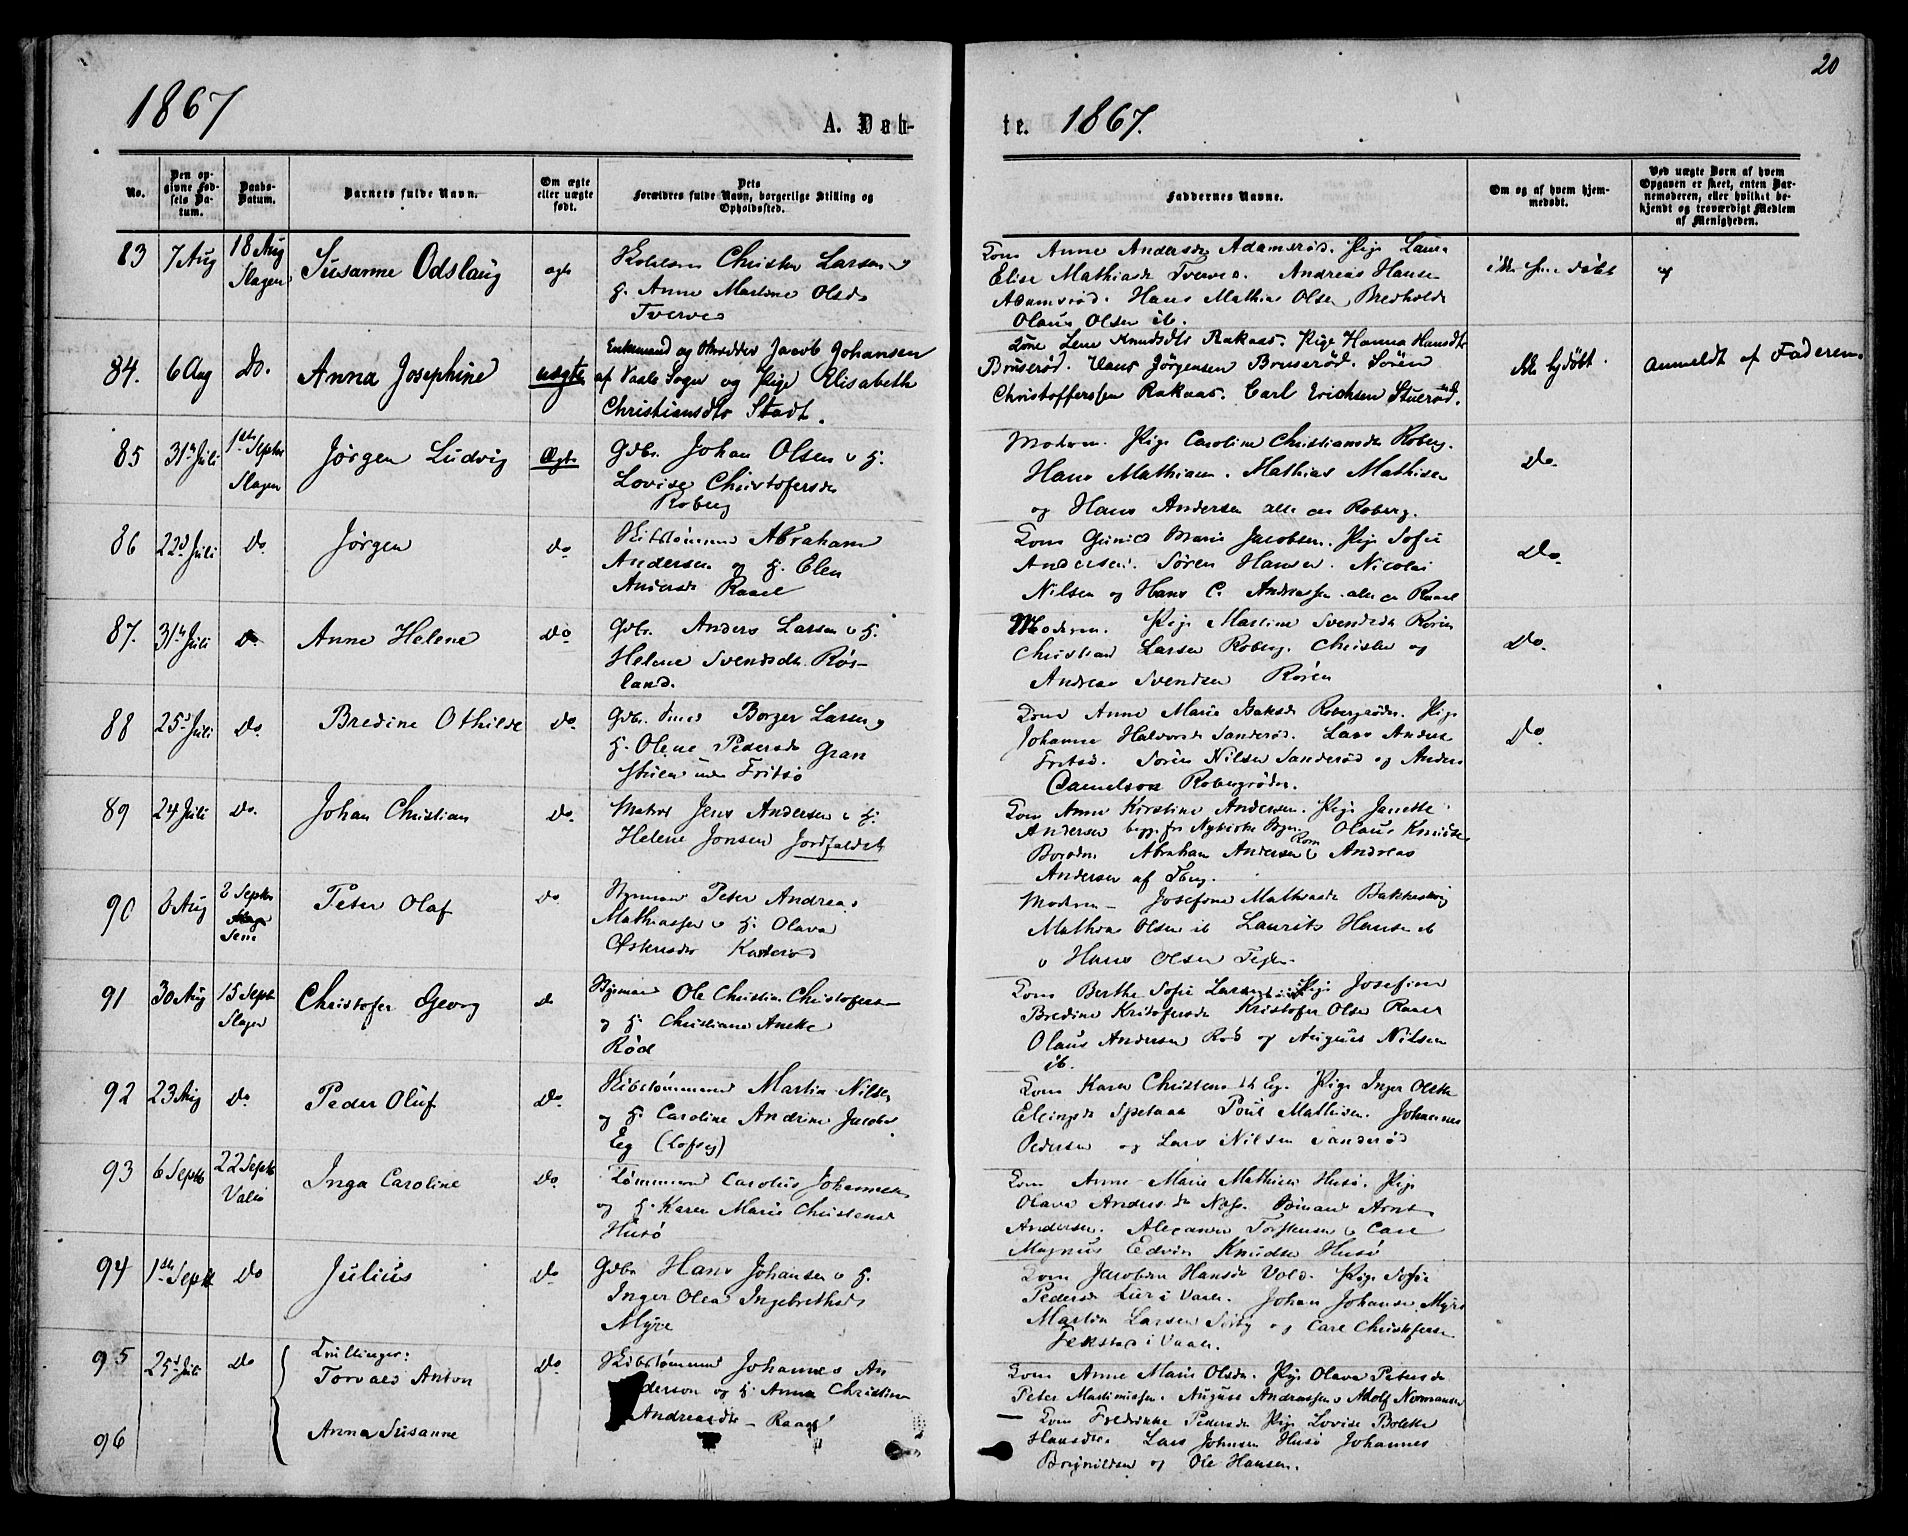 20
1867
A. Døb-
te. 1867.
No.
Den op-
givne Fød-
sels Da-
tum.
Daabs-
Datum.
Barnets fulde Navn.
Om ægte
eller uægte
født.
Dets
Forældres fulde Navn, borgerlige Stilling og
Opholdssted.
Faddernes Navne.
Om og af hvem hjem-
medøbt.
Ved uægte Børn af hvem
Opgaven er skeet, enten Bar-
nemoderen, eller hvilket be-
kjendt og troværdigt Medlem
af Menigheden.
83 7 Aug 18 Aug Slagen Susanne Odslaug ægte
Christen Larsen
H. Anne Martine Olsd
Tverved
Anne Andersd Adamsrød. Pige Laura
Elise Mathiasd Tverved. Andreas Hansen
Adamsrød. Hans Mathias Olsen Bredholdt
Olaus Olsen ib.
84. 6 Aug Do. Anna Josephine uægte
Enkemand og Jacob Johansen
af Vaale Sogn og Pige Elisabeth
Christiansdtr Stadt.
Kone Lene Knudsdtr Rakaas. Pige Hanna Hansdtr
Bruserød. Hans Jørgensen Bruserød. Søren
Christoffersen Rakaas. Carl Erichsen Stuerød.
ikke hjdøbt.
Anmeldt af Faderen
85 31te Juli 1ste Septbr Slagen Jørgen Ludvig Ægte
Gdbr. Johan Olsen o H.
Lovise Christofersd
Roberg
Modren. Pige Caroline Christiansdtr Roberg.
Hans Mathisen. Mathias Mathisen
og Hans Andersen alle af Roberg.
Do.
86 22d Juli Do Jørgen Do
Skibstømmermd Abraham
Andersen og H. Elen
Andersd Raael
Kone Gunild Marie Jacobsen. Pige Sofie
Andersen. Søren Hansen. Nicolai
Nilsen og Hans C. Andreassen alle af Raael
Do
87. 31te Juli Do Anne Helene Do
Gdbr. Anders Larsen o H.
Helene Svendsdtr. Røs-
land.
Modren. Pige Martine Svendsdtr Røren
Christian Larsen Roberg. Christen og
Andreas Svendsen Røren
Do.
88 25d Juli Do. Bredine Othilde Do.
Gdbr. Borger Larsen o
H. Olene Pedersd Gran
Fritsø
Kone Anne Marie Robergrøden. Pige
Johanne Halvorsd Sanderød. Lars Anders
Fritsø. Søren Nilsen Sanderød og Anders
Danielsen Robergrøden.
Do.
89 24 Juli Do. Johan Christian Do.
Matros Jens Andersen o H.
Helene Jonsen Jordfaldet
Kone Anne Kirstine Andersen. Pige Janette
Andersen begge fra Nykirke Sogn. Olaus Knudsen
Abraham Andersen o Andreas
Andersen af Tbrg.
90 8 Aug 8 Septbr Sem Peter Olaf Do
Styrmand Peter Andreas
Mathiassen o H. Olava
Modren – Josefine Mathiasdtr
Mathias Olsen ib Laurits Hansen ib
o Hans Olsen
91 30 Aug 15 Septb Slagen Christofer Georg Do
Styrmand Ole Christian Christofersen
og H. Christiane Aneke
Røed
Kone Berthe Sofie Larsen Pige Josefine
Bredine Kristofersdtr Kristofer Olsen Raael
Olaus Andersen Rød og August Nilsen
ib.
92 23 Aug Do. Peder Oluf Do.
Skibstømmermand Martin Nilsen
og H. Caroline Andrine Jacobs
Eg (Lofseg)
Kone Karen Christensdtr Eg. Pige Inger Olette
Ellingsd Poul Mathisen. Johannes
Pedersen og Lars Nilsen Sanderød
93 6 Septb 22 Septb Valø Inga Caroline Do.
Tømmermd Carolius Johannesen
og H. Karen Marie Christensd
Husø
Kone Anne Marie Mathisen Husø. Pige
Olava Andersdtr Nøss. Sømand Arnt
Andersen. Alexander Torstensen o Carl
Magnus Edvin Knudsen Husø
94 1ste Septb Do Julius Do
Gdbr Hans Johansen o H.
Inger Olea Ingebrethsd
Myre
Kone Jacobine Hansd Vold. Pige Sofie
Pedersd Lier i Vaale. Johan Johansen Myre
Martin Larsen og Carl Christofersen
i Vaale.
95 25d Juli Do Tvillinger: Torvald Anton Do.
Skibstømmermd Johannes An
derson og H. Anna Christine
Andreasdtr – Raael
Kone Anne Marie Olsdtr. Pige Olava Petersdtr
Peter Martiniussen. August Andreassen o Adolf Normansen
96 Anna Susanne
Kone Fredrikke Pedersdtr Pige Lovise Bolette
Hansdtr. Lars Johnsen Husø Johannes
og Ole Hansen.